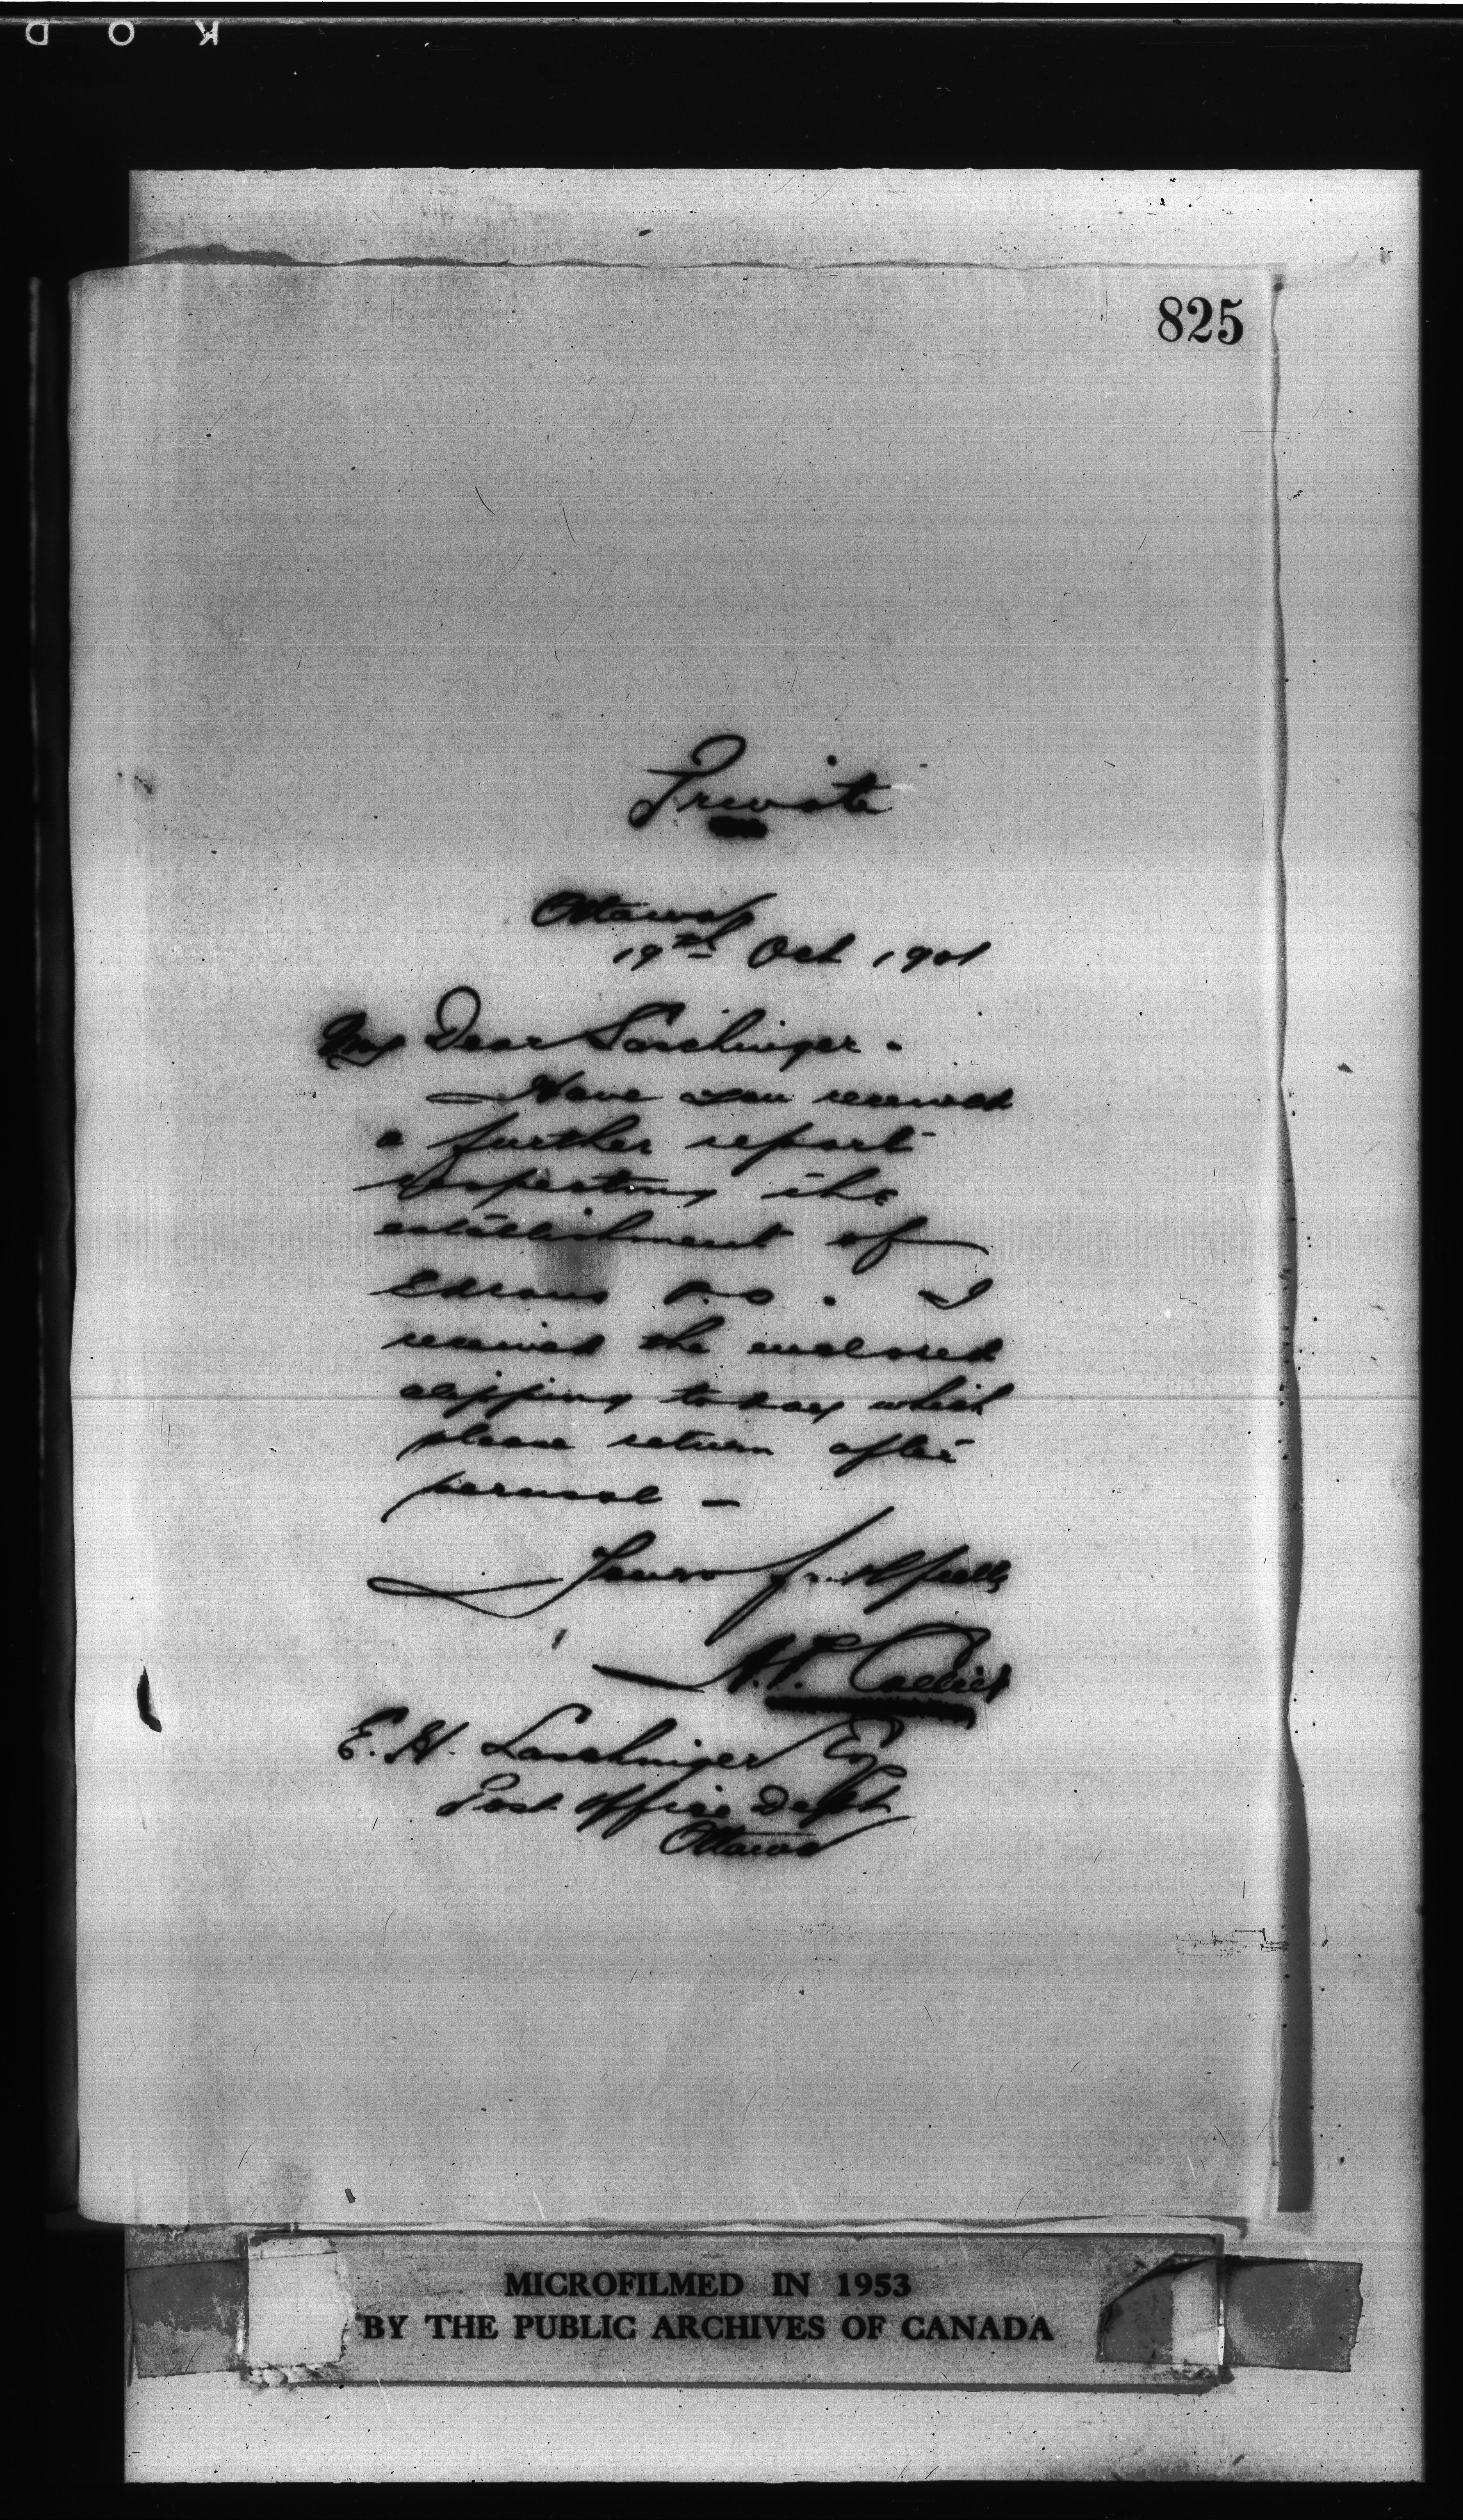 K O D
825
Private
Ottawa
19th Oct 1901
My Dear Laschinger.
Have you received
a further report
respecting the
establishment of
P.O. I
received the enclosed
clipping today which
please return after
perusal -
Yours faithfully
E. H. Laschinger Esq
Post Office Dept
Ottawa
MICROFILMED IN 1953
BY THE PUBLIC ARCHIVES OF CANADA